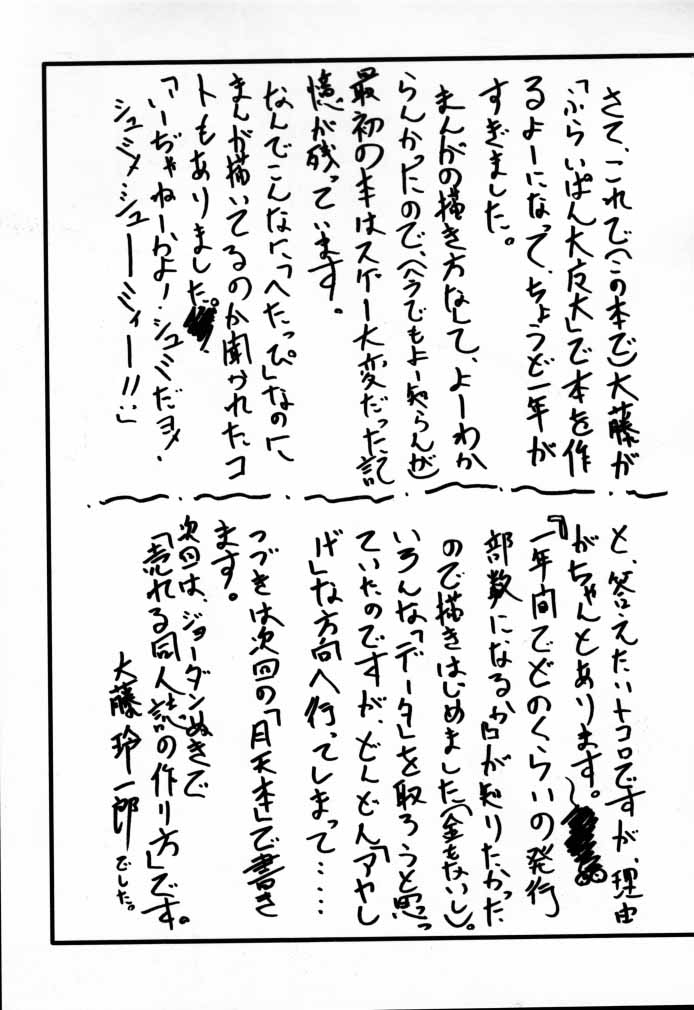 さて、これで(この本で)大藤が
「ふらいぱん大反大」で本を作
るよーになって、ちょうど一年が
すぎました。
まんがの描き方なんて、よーわか
らんかったので、(今でもよー知らんが)
最初の本はスゲー大変だった記
憶が残っています。
なんでこんなに、「へたっぴ」なのに、
まんが描いてるのか聞かれたコ
トもありました。
「いーぢゃねーかよ!シュミだヨ!
シュミ〆シューーミィー!!」
と、答えたいトコロですが、理由
がちゃんとあります。
『一年間でどのくらいの発行
部数になるか』が知りたかった
ので描きはじめました(金もないし)。
いろんな「データ」を取ろうと思っ
ていたのですが、どんどん「アヤし
げ」な方向へ行ってしまって……
つづきは次回の「月天本」で書き
ます。
次回は、ジョーダンぬきで
「売れる同人誌の作り方」です。
大藤玲一郎でした。